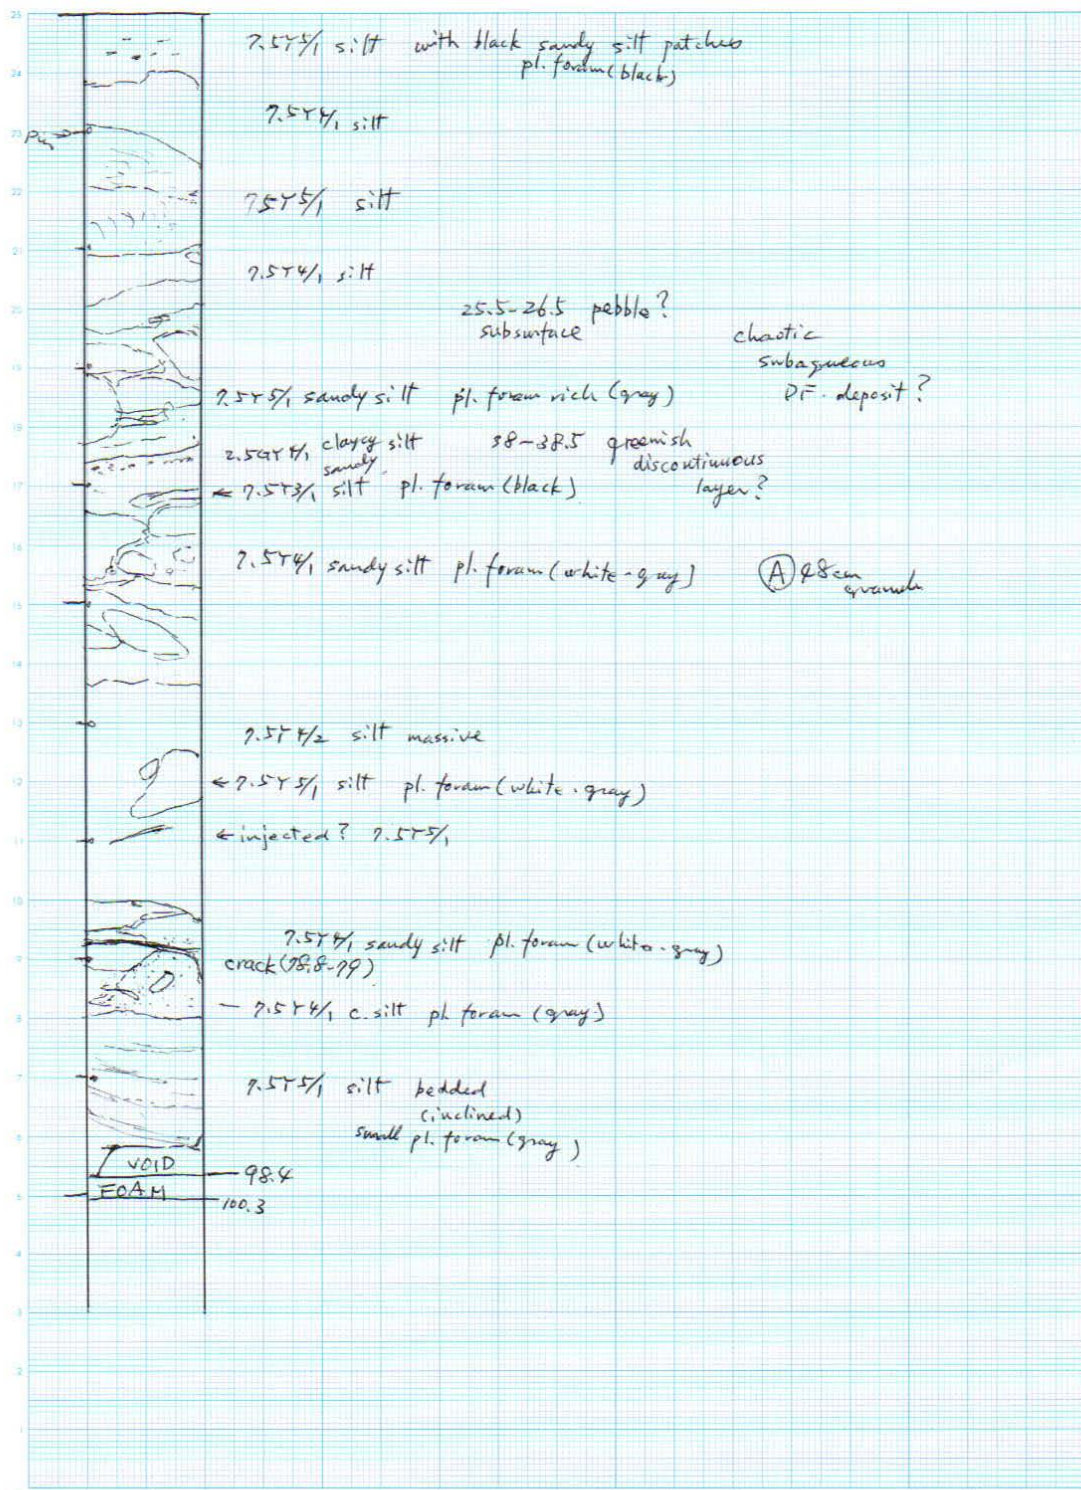 25
7.5Y5/1 silt with black sandy silt patches
pl. foram (black)
24
7.5Y4/1 silt
23
Pin
22
7.5Y5/1 silt
21
7.5Y4/1 silt
20
25.5-26.5 pebble?
subsurface
chaotic
subaqueous
DF. deposit?
19
7.5Y5/1 sandy silt pl. foram rich (gray)
18
2.5GY4/1 clayey silt
sandy
38-38.5 greenish
discontinuous
layer?
17
← 7.5Y3/1 silt pl. foram (black)
16
7.5Y4/1 sandy silt pl. foram (white-gray)
(A) 48cm
granule
15
14
13
7.5Y4/2 silt massive
12
← 7.5Y5/1 silt pl. foram (white-gray)
11
← injected? 7.5Y5/1
10
7.5Y4/1 sandy silt pl. foram (white-gray)
9
crack (78.8-79)
8
- 7.5Y4/1 c. silt pl. foram (gray)
7
7.5Y5/1 silt bedded
(inclined)
small pl. foram (gray)
6
VOID
98.4
FOAM
5
100.3
4
3
2
1